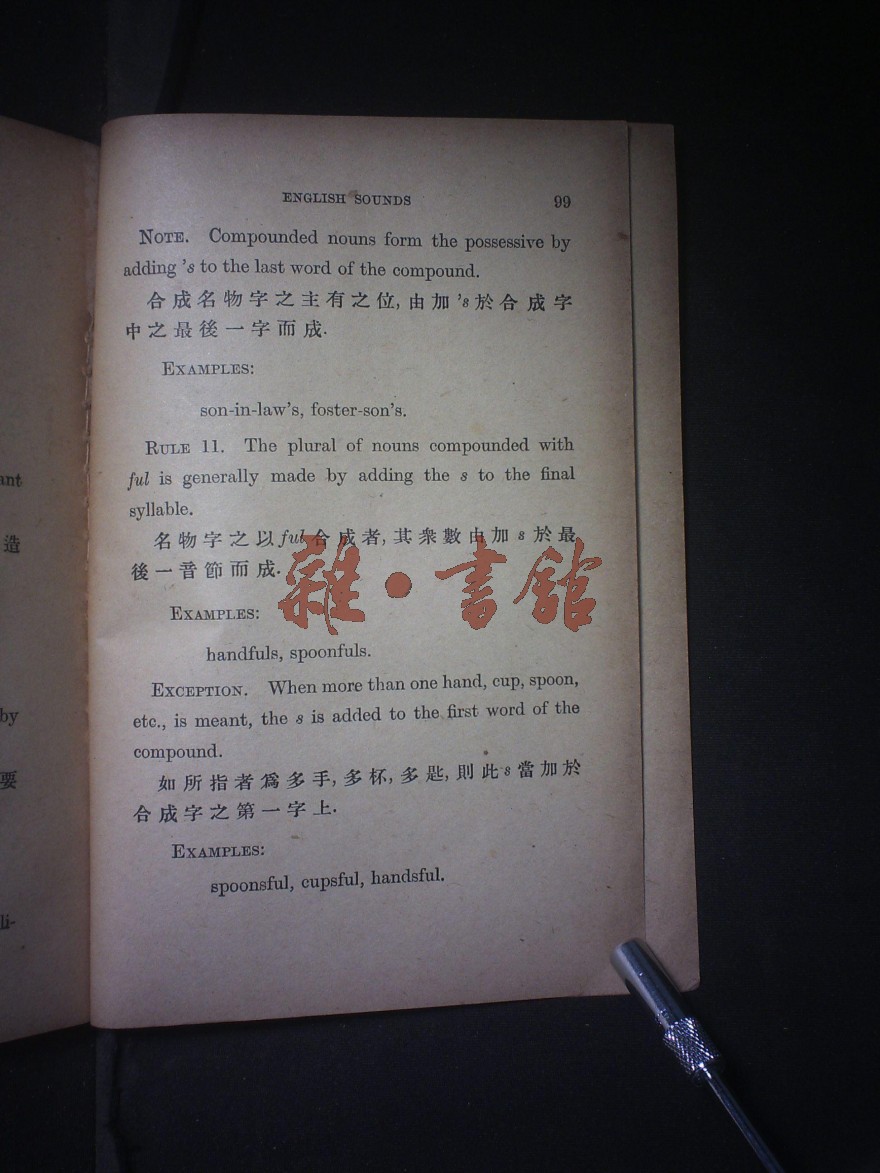 ant
造
by
要
li-
ENGLISH SOUNDS 99
NOTE. Compounded nouns form the possessive by
adding 's to the last word of the compound.
合成名物字之主有之位, 由加 's 於合成字
中之最後一字而成.
EXAMPLES:
son-in-law's, foster-son's.
RULE 11. The plural of nouns compounded with
ful is generally made by adding the s to the final
syllable.
名物字之以 ful 合成者, 其衆數由加 s 於最
後一音節而成.
雜·書館
EXAMPLES:
handfuls, spoonfuls.
EXCEPTION. When more than one hand, cup, spoon,
etc., is meant, the s is added to the first word of the
compound.
如所指者爲多手, 多杯, 多匙, 則此 s 當加於
合成字之第一字上.
EXAMPLES:
spoonsful, cupsful, handsful.